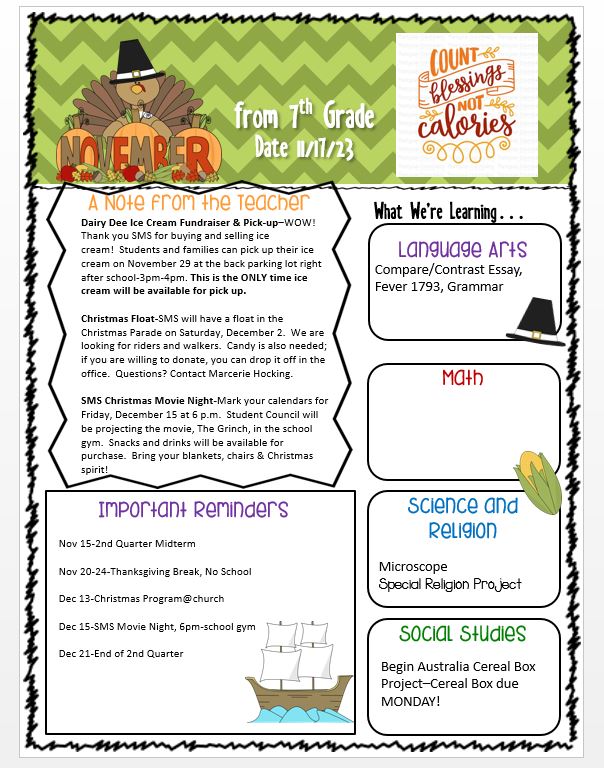 NOVEMBER
from 7th Grade
Date 11/17/23
COUNT
blessings
NOT
calories
A Note from the Teacher
Dairy Dee Ice Cream Fundraiser & Pick-up–WOW!
Thank you SMS for buying and selling ice
cream!  Students and families can pick up their ice
cream on November 29 at the back parking lot right
after school-3pm-4pm. This is the ONLY time ice
cream will be available for pick up.
Christmas Float-SMS will have a float in the
Christmas Parade on Saturday, December 2.  We are
looking for riders and walkers.  Candy is also needed;
if you are willing to donate, you can drop it off in the
office.  Questions? Contact Marcerie Hocking.
SMS Christmas Movie Night-Mark your calendars for
Friday, December 15 at 6 p.m.  Student Council will
be projecting the movie, The Grinch, in the school
gym.  Snacks and drinks will be available for
purchase.  Bring your blankets, chairs & Christmas
spirit!
Important Reminders
Nov 15-2nd Quarter Midterm
Nov 20-24-Thanksgiving Break, No School
Dec 13-Christmas Program@church
Dec 15-SMS Movie Night, 6pm-school gym
Dec 21-End of 2nd Quarter
What We're Learning...
Language Arts
Compare/Contrast Essay,
Fever 1793, Grammar
Math
Science and
Religion
Microscope
Special Religion Project
Social Studies
Begin Australia Cereal Box
Project–Cereal Box due
MONDAY!